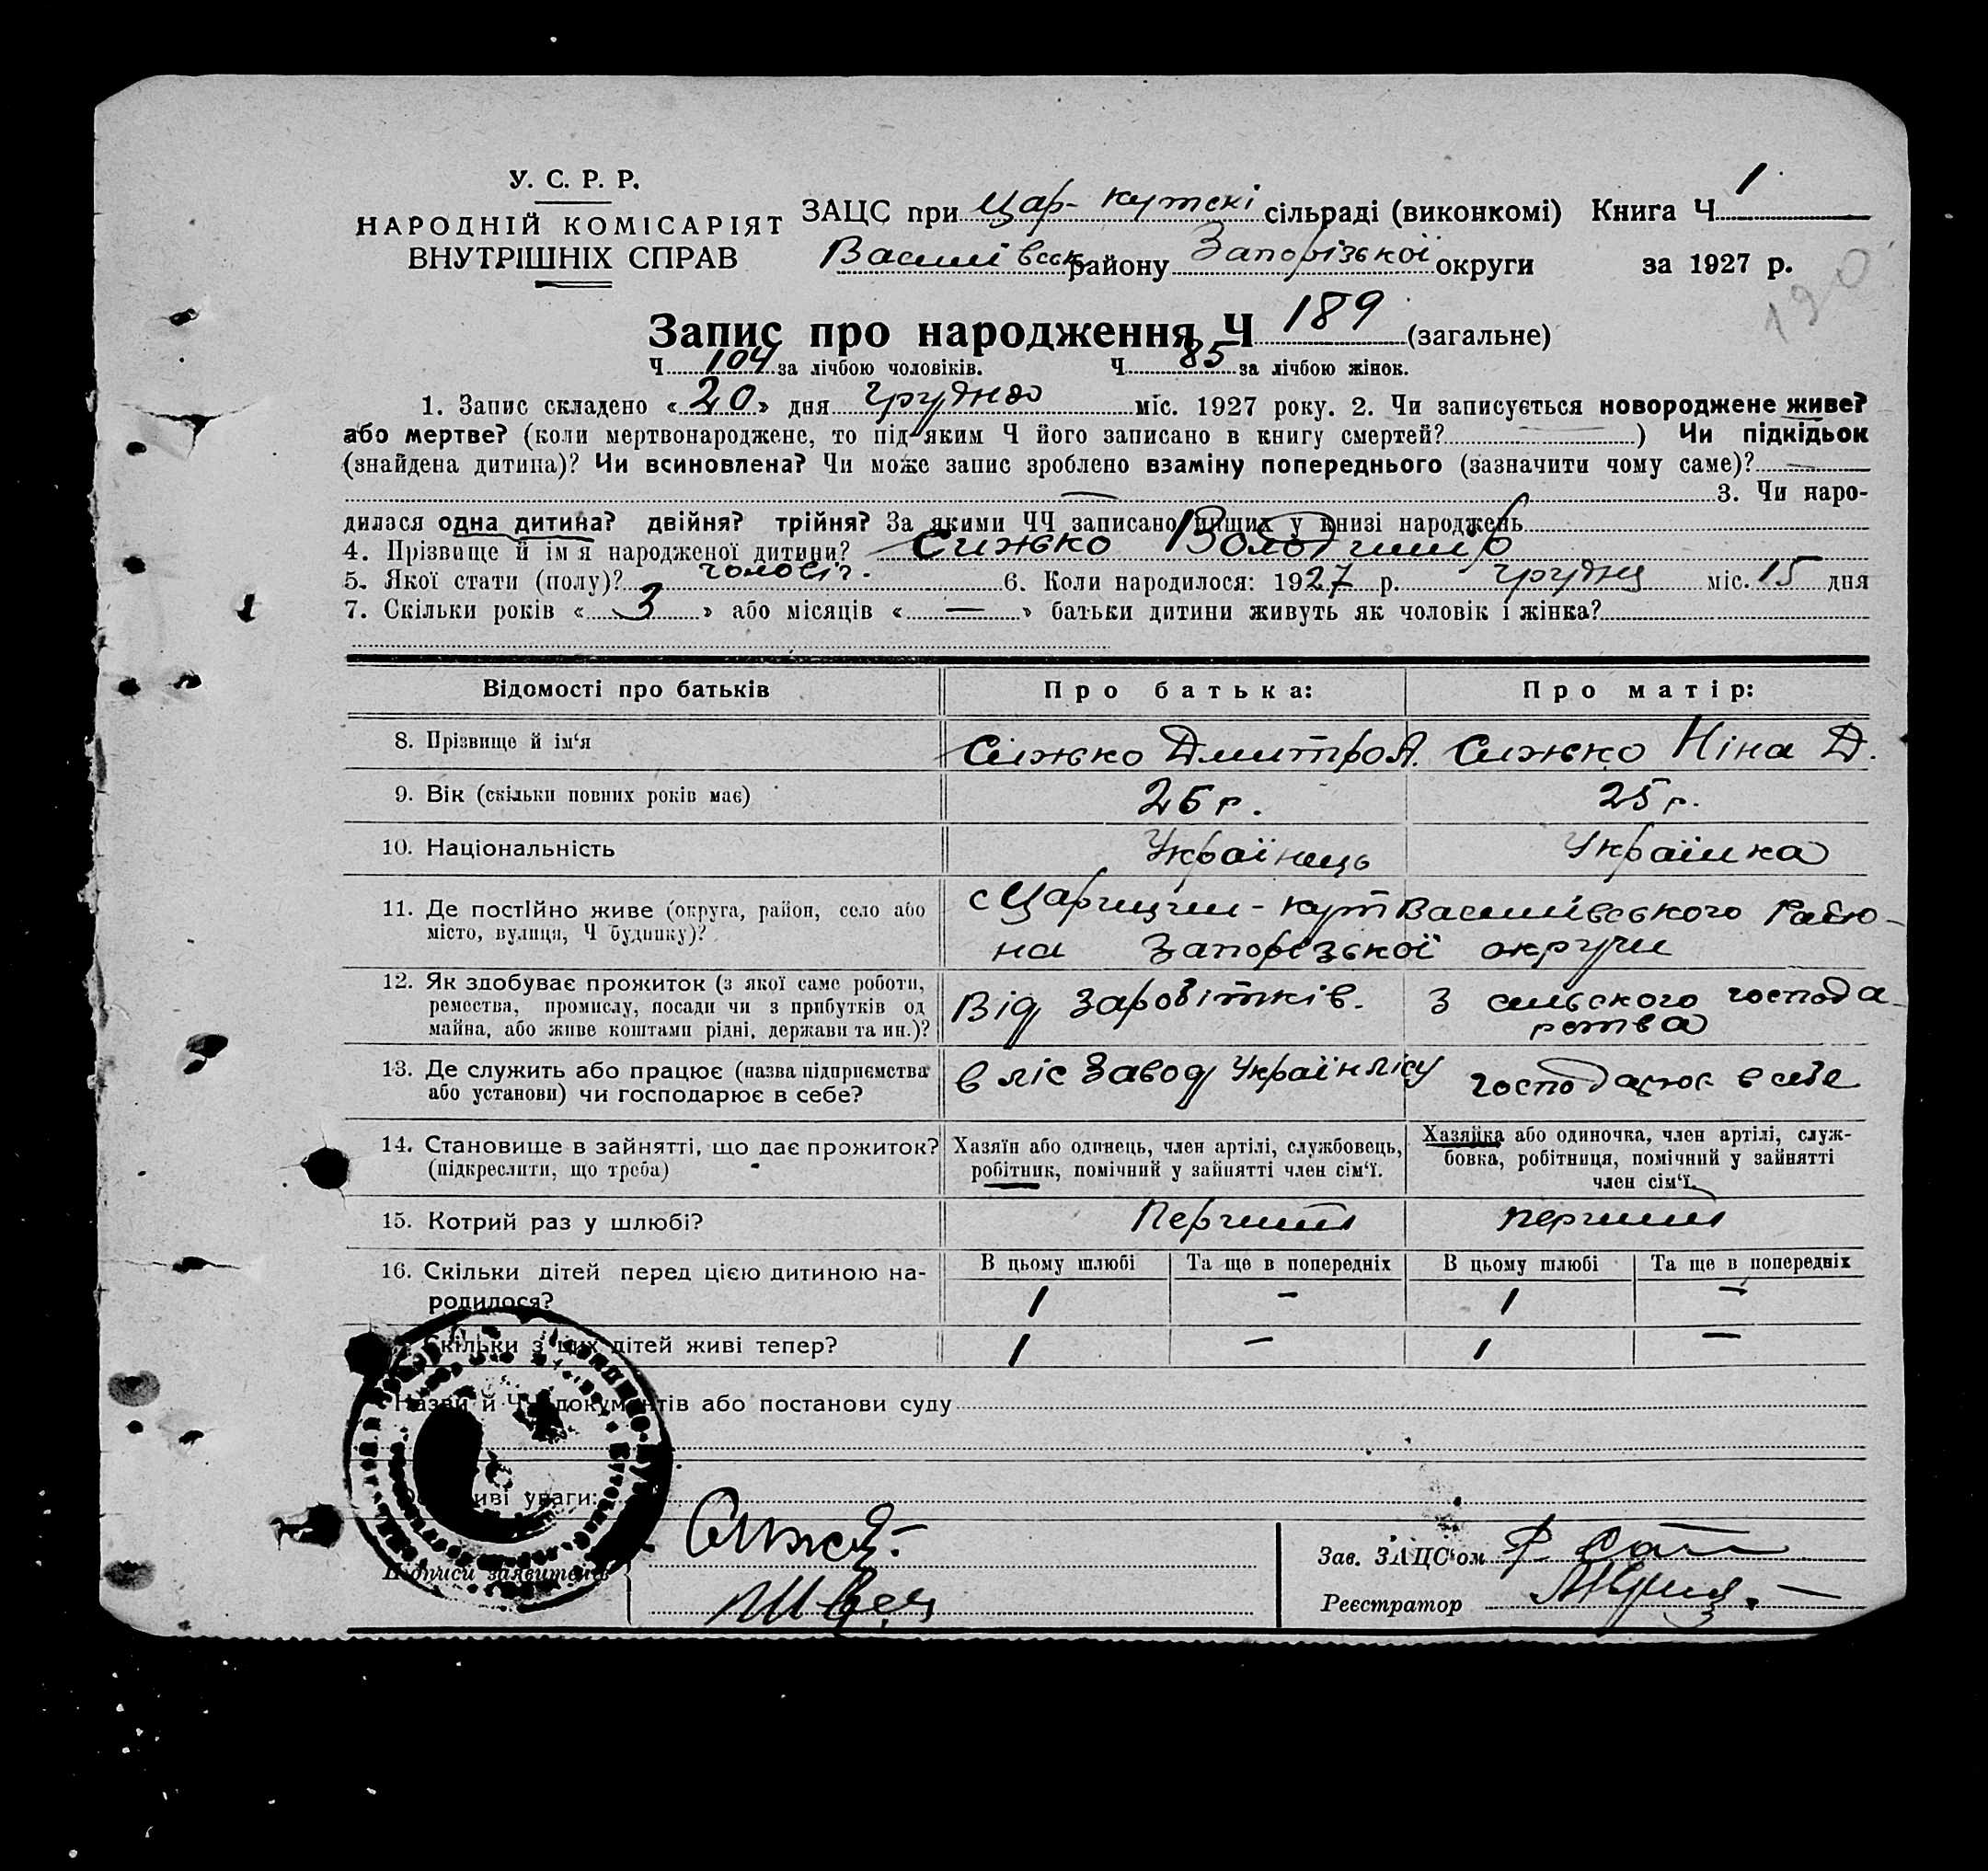 У. С. Р. Р.
НАРОДНІЙ КОМІСАРІЯТ
ВНУТРІШНІХ СПРАВ
ЗАЦС при Цар-кутскі сільраді (виконкомі) Книга Ч 1
Василівськ району Запорізької округи за 1927 р.
190
Запис про народження Ч 189 (загальне)
Ч 104 за лічбою чоловіків. Ч 85 за лічбою жінок.
1. Запис складено «20» дня грудня міс. 1927 року. 2. Чи записується новороджене живе?
або мертве? (коли мертвонароджене, то під яким Ч його записано в книгу смертей? —) Чи підкідьок
(знайдена дитина)? Чи всиновлена? Чи може запис зроблено взаміну попереднього (зазначити чому саме)? —
— 3. Чи наро-
дилася одна дитина? двійня? трійня? За якими ЧЧ записано инших у книзі народжень
4. Прізвище й ім'я народженої дитини? Сижко Володимир
5. Якої стати (полу)? чоловіч. 6. Коли народилося: 1927 р. грудня міс. 15 дня
7. Скільки років «3» або місяців «—» батьки дитини живуть як чоловік і жінка?
Відомості про батьків Про батька: Про матір:
8. Прізвище й ім'я Сижко Дмитро А. Сижко Ніна Д.
9. Вік (скільки повних років має) 26 р. 25 р.
10. Національність Українець Українка
11. Де постійно живе (округа, район, село або
місто, вулиця, Ч будинку)?
с Царицин-кут Василівського Райо-
на Запорізької округи
12. Як здобуває прожиток (з якої саме роботи,
ремества, промислу, посади чи з прибутків од
майна, або живе коштами рідні, держави та ин.)?
Від Заробітків.
З сильского господа-
рства
13. Де служить або працює (назва підприємства
або установи) чи господарює в себе?
в ліс Завод Українлісу
господарює в себе
14. Становище в зайнятті, що дає прожиток?
(підкреслити, що треба)
Хазяїн або одинець, член артілі, службовець,
робітник, помічний у зайнятті член сім'ї.
Хазяйка або одиночка, член артілі, служ-
бовка, робітниця, помічний у зайнятті
член сім'ї.
15. Котрий раз у шлюбі? Перший перший
16. Скільки дітей перед цією дитиною на-
родилося?
В цьому шлюбі Та ще в попередніх В цьому шлюбі Та ще в попередніх
1 — 1 —
Скільки з цих дітей живі тепер? 1 — 1 —
Назви й ЧЧ документів або постанови суду
уваги:
Підписи заявителів
Швец
Зав. ЗАЦС'ом
Реєстратор